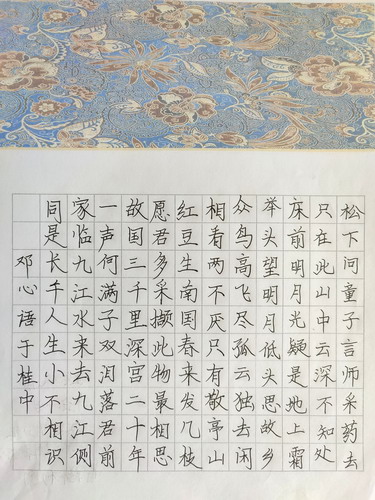 松下问童子言师采药去
只在此山中云深不知处
床前明月光疑是地上霜
举头望明月低头思故乡
众鸟高飞尽孤云独去闲
相看两不厌只有敬亭山
红豆生南国春来发几枝
愿君多采撷此物最相思
故国三千里深宫二十年
一声何满子双泪落君前
家临九江水来去九江侧
同是长千人生小不相识
邓心语于桂中